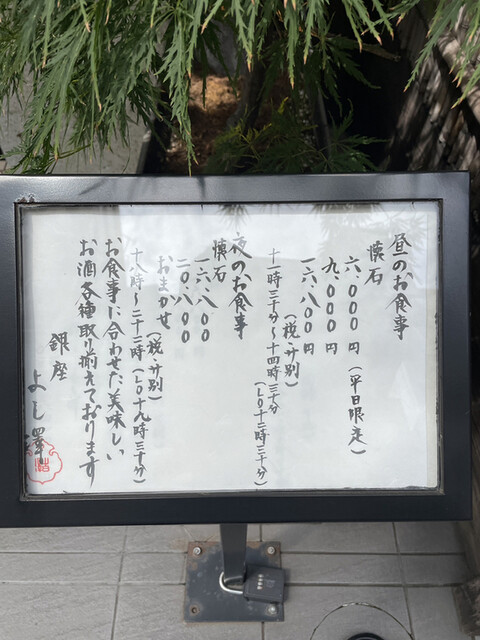 昼のお食事
懐石
六.〇〇〇円(平日限定)
九.〇〇〇円
一六.八〇〇円
(税・サ別)
十一時三十分〜十四時三十分
(LO十三時三十分)
夜のお食事
懐石
一六.八〇〇
二〇.八〇〇
おまかせ
(税・サ別)
十八時〜二十二時(LO十九時三十分)
お食事に合わせた美味しい
お酒各種取り揃えております
銀座
よし澤